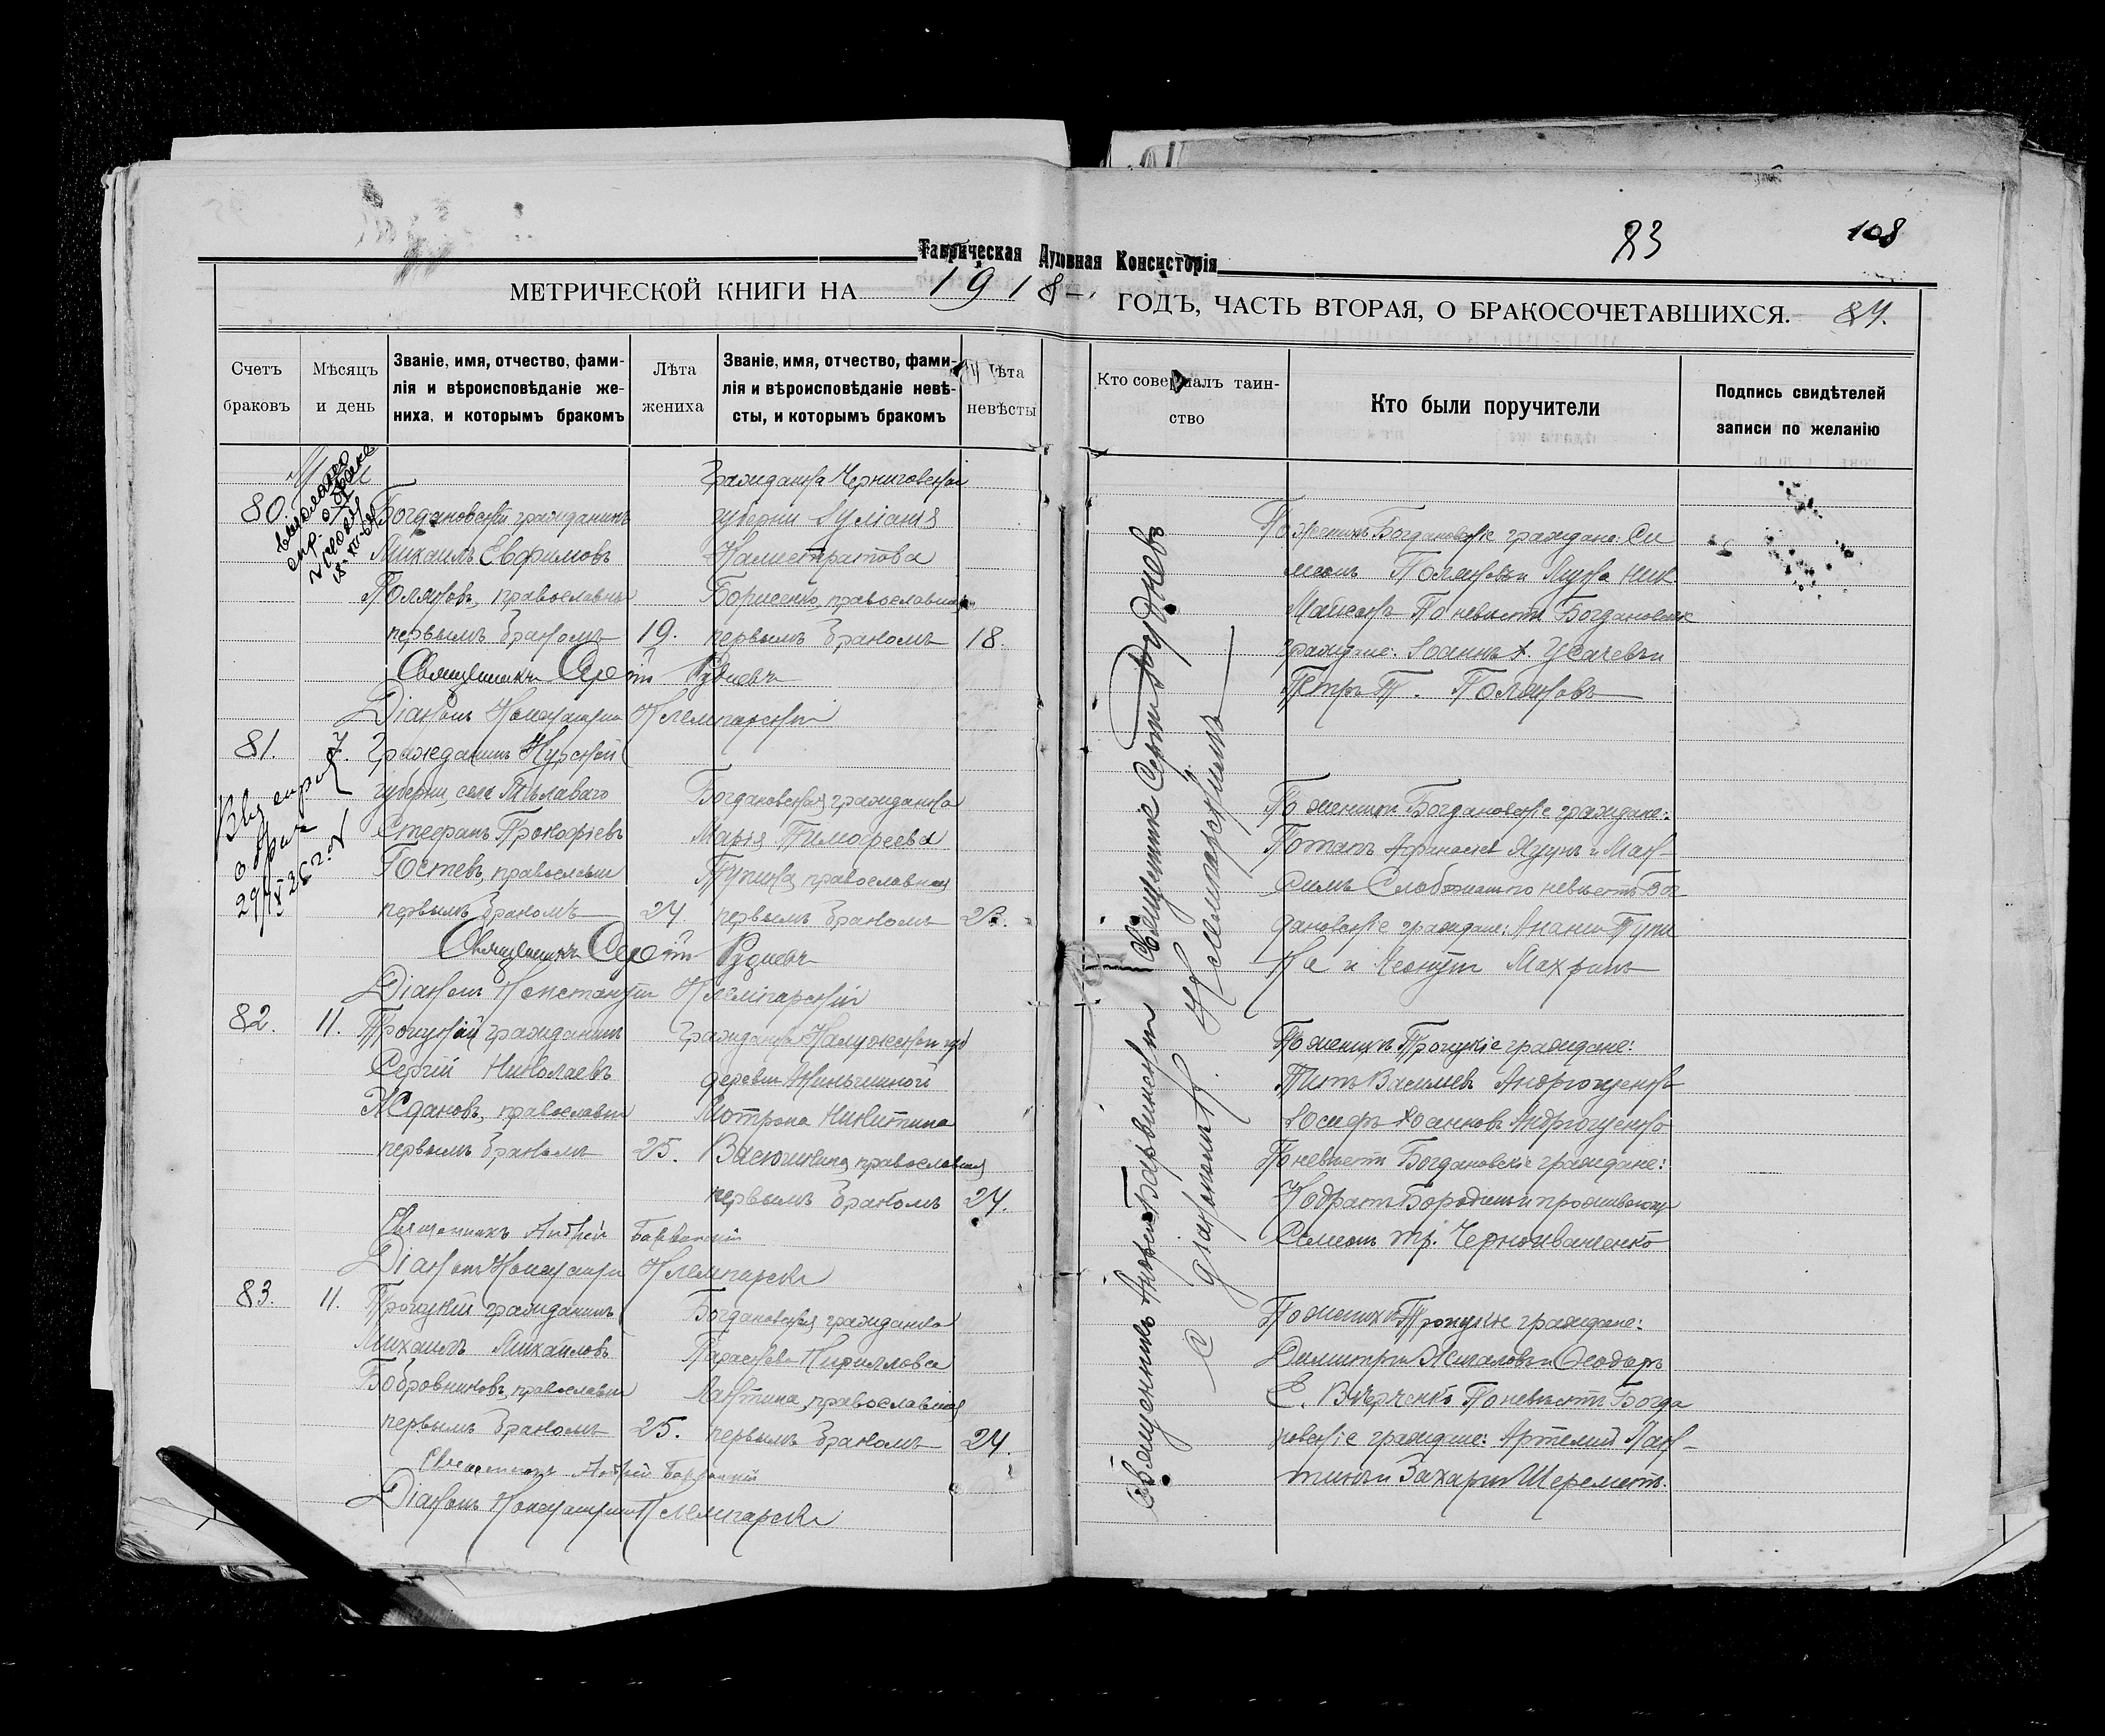 83
108
Таврическая Духовная Консисторія
МЕТРИЧЕСКОЙ КНИГИ НА 1918 ГОДЪ, ЧАСТЬ ВТОРАЯ, О БРАКОСОЧЕТАВШИХСЯ. 84.
Счетъ браковъ
Мѣсяцъ и день
Званіе, имя, отчество, фами-
лія и вѣроисповѣданіе же-
ниха, и которымъ бракомъ
Лѣта жениха
Званіе, имя, отчество, фами-
лія и вѣроисповѣданіе невѣ-
сты, и которымъ бракомъ
Лѣта невѣсты
Кто совершалъ таин-
ство
Кто были поручители
Подпись свидѣтелей
записи по желанію
80.
Богдановскій гражданинъ
Михаилъ Евфимовъ
Поляковъ, православн
первымъ бракомъ
19.
Гражданка Черниговской
губерни Іуліанія
Калистратова
Борисенко, православная
первымъ бракомъ
18.
Священникъ Сергій Рудневъ
Діаконъ Константин Клепарскій
По женихѣ Богдановскіе граждане: Си
меонъ Поляковъ и Лука Ник
По невѣсте Богдановскіе
граждане: Іоаннъ Х. Усачевъ и
Петръ Т. Поляковъ
81.
7.
Гражданинъ Курской
губерни, села
Стефанъ Прокофіевъ
Постевъ, православн
первымъ бракомъ
24.
Богдановская гражданка
Марія Тимофеева
Пупина, православная
первымъ бракомъ
Священникъ Сергій Рудневъ
Діаконъ Константин
По женихѣ Богдановскіе граждане:
Потапъ Афанасіев и Мак-
симъ
дановскіе граждане: Ананій Пупи
82.
11.
Троицкій гражданинъ
Сергій Николаевъ
Ждановъ, православн
первымъ бракомъ
25.
Гражданка Калужской губ
деревни
Мотрона Никитина
Васюшкина, православная
первымъ бракомъ
24.
Священникъ Андрей
Діаконъ Константин
По женихѣ Троицкіе граждане:
Титъ Василіев Андрющенко
Іосифъ Іоанновъ Андрющенко
По невѣсти Богдановскіе граждане:
Симеонъ Тр. Черноиваненко
83.
11.
Троицкій гражданинъ
Михаилъ Михайловъ
Бобровниковъ, православн
первымъ бракомъ
25.
Богдановская гражданка
Параскева Кириллова
Лактина, православная
первымъ бракомъ
24.
Священникъ Андрей
Діаконъ Константин
По женихѣ Троицкіе граждане:
Димитрій Жигаловъ и Ѳеодоръ
По невѣстѣ Богда
новскіе граждане: Артемий Лак-
тинъ и Захарій Шереметъ.
Священник Сергій Рудневъ
Священникъ Андрей
с діакономъ К.